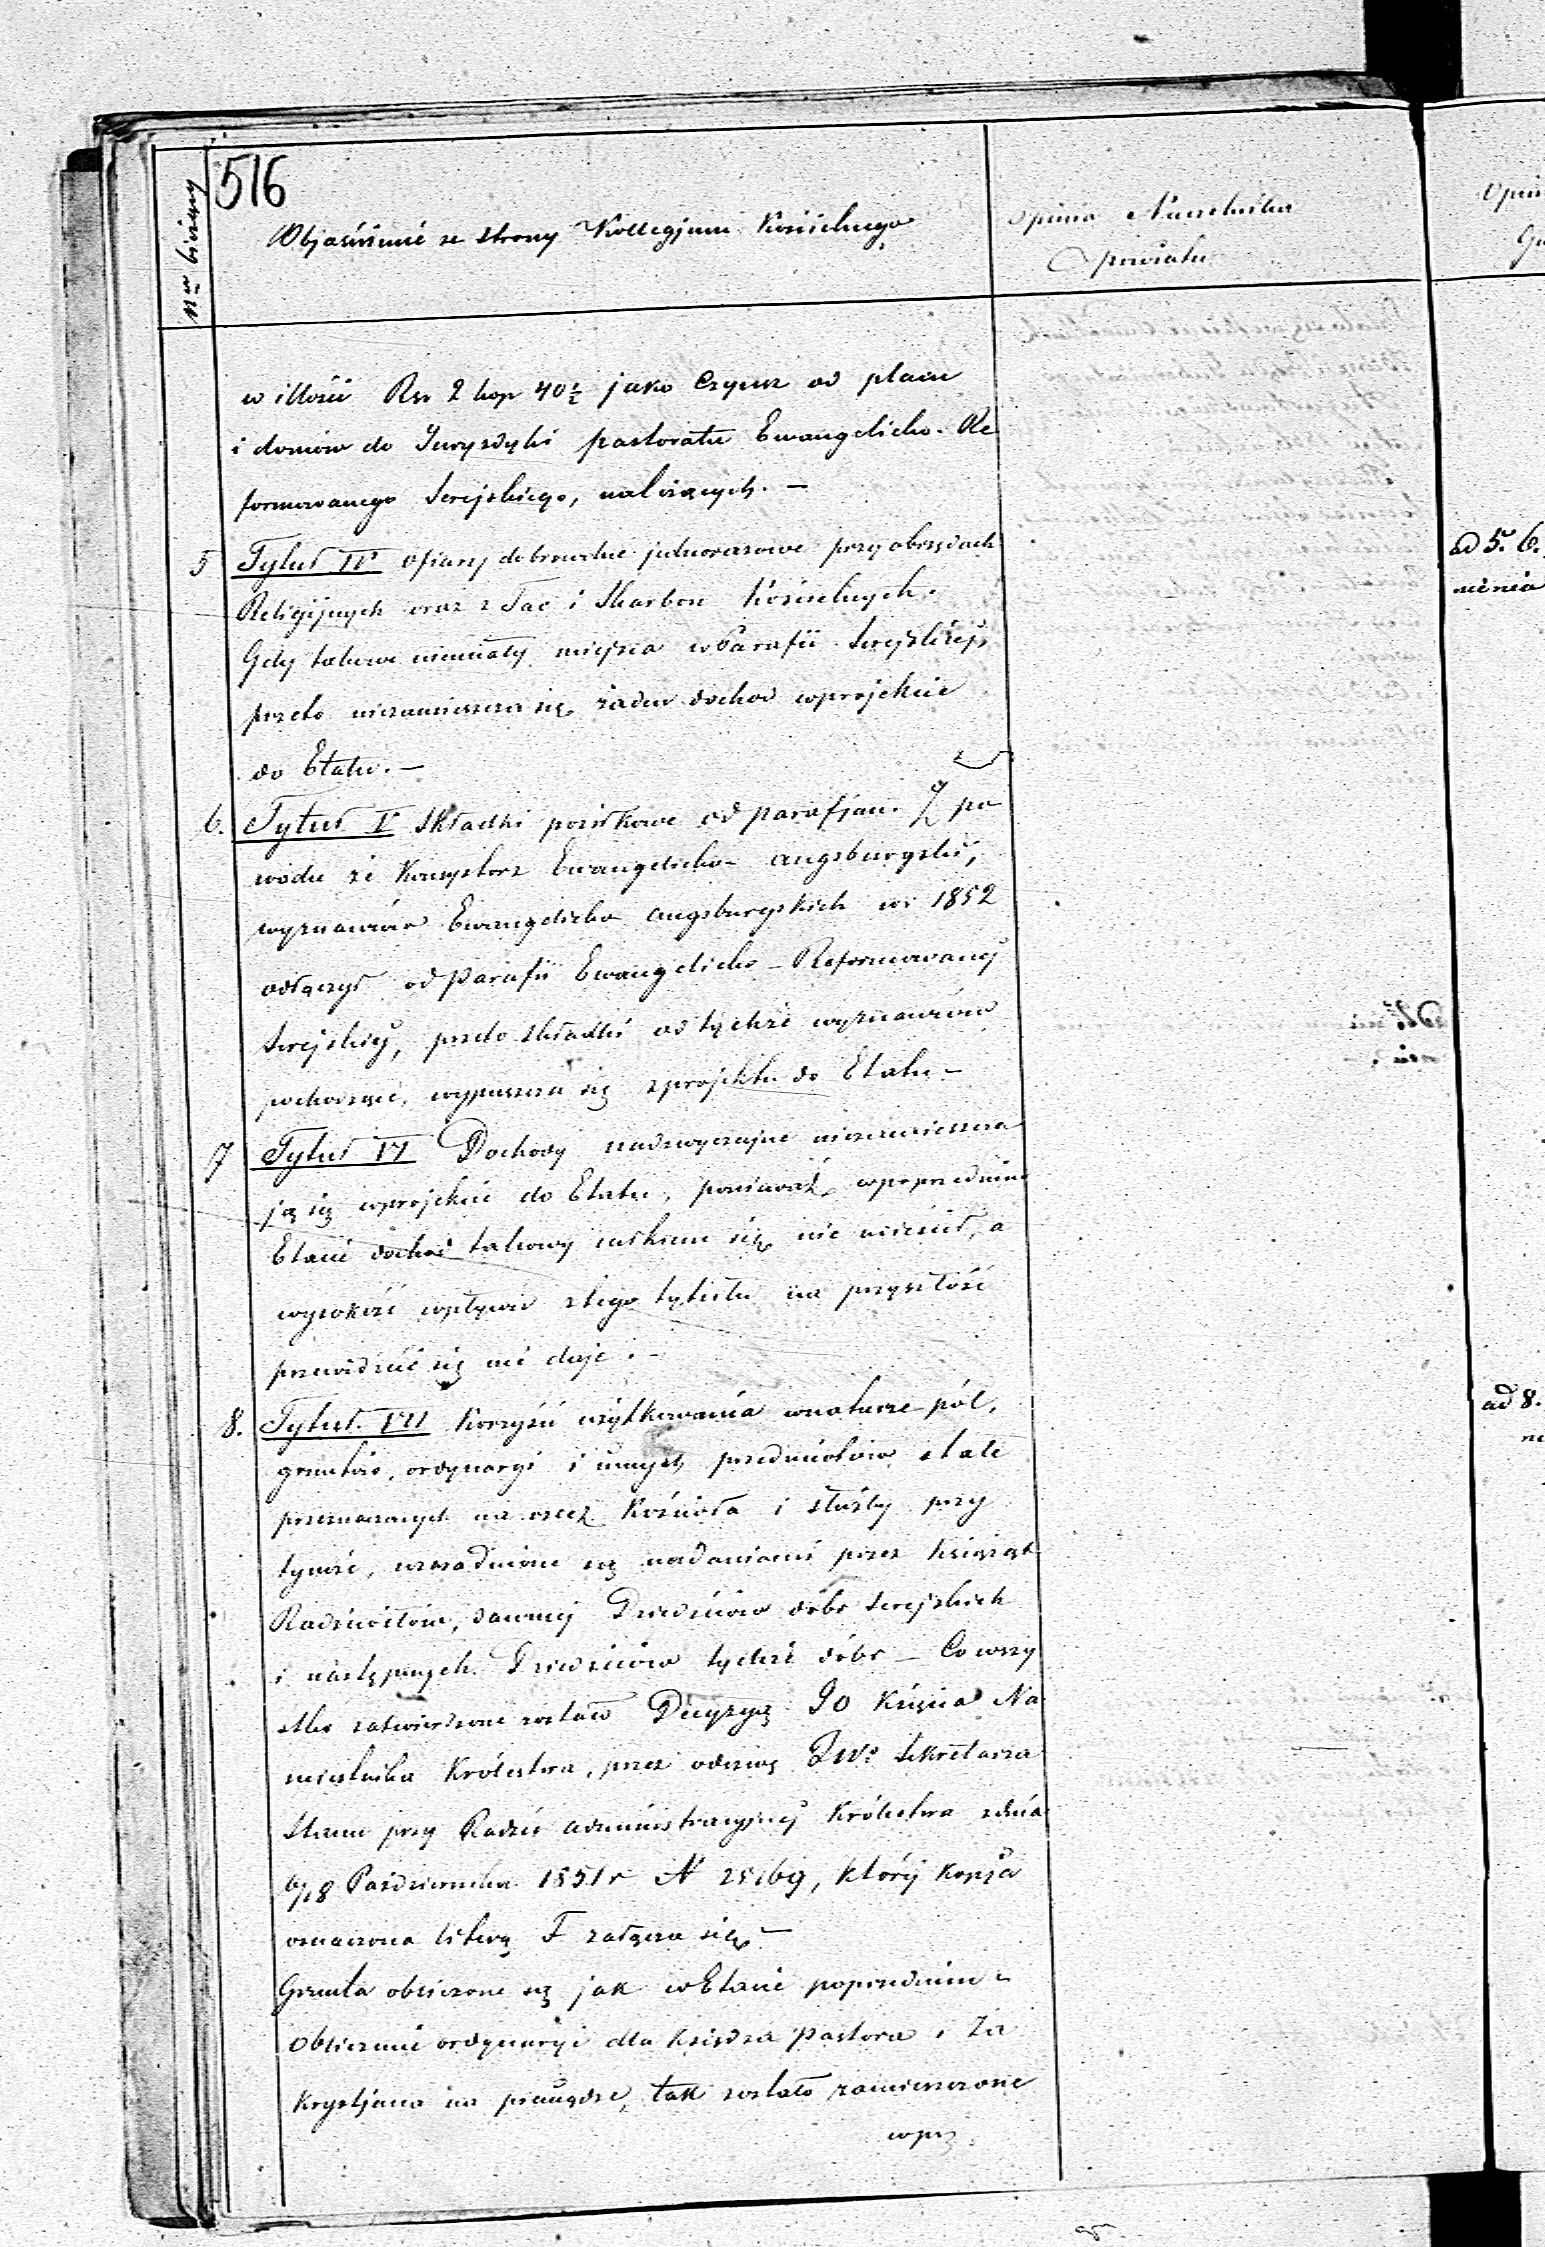 516
Nr bieżący
Objaśnienie ze strony Kollegjum Kościelnego
Opinia Naczelnika
Powiatu
Opin
Gu
w illości Rsr 2 kop 40½ jako Czynsz od placu
i domów do Juryzdyki pastoratu Ewangelicko-Re
formowanego Serejskiego, należących. —
5 Tytuł IV Ofiary dobrowolne jednorazowe przy obrzędach
Religijnych oraz z Tac i Skarbon Kościelnych.
Gdy takowe niemiały miejsca w Parafii Serejskiej,
przeto niezamieszcza się żaden dochod w projekcie
do Etatu. —
6. Tytuł V Składki posiłkowe od parafjan. Z po
wodu że Konsystorz Ewangelicko-Augsburgski,
wyznawców Ewangelicko Augsburgskich w r 1852
odłączył od Parafii Ewangelicko-Reformowanej
Serejskiej, przeto składki od tychże wyznawców
pochodzące, wypuszcza się z projektu do Etatu —
7 Tytuł VI Dochody nadzwyczajne niezamieszcza
ją się w projekcie do Etatu, ponieważ w poprzednim
Etacie dochod takowy nie ziścił, a
wysokość wpływu z tego tytułu na przyszłość
przewidzieć się nie daje. —
8. Tytuł VII Korzyści użytkowania w naturze pól,
gruntów, ordynaryi i innych przedmiotów stale
przeznaczonych na rzecz Kościoła i służby przy
tymże, uzasadnione są nadaniami przez książąt
Radziwiłłów, dawniej Dziedziców dóbr Serejskich
i następnych Dziedziców tychże dóbr — Co wszy
stko zatwierdzone zostało Decyzyą JO Księcia Na
miestnika Królestwa, przez odezwę JWo Sekretarza
Stanu przy Radzie Administracyjnej Królestwa z dnia
6/18 Pazdziernika 1851 r N 25169, który kopja
oznaczona literą F załącza się —
Grunta obliczone są jak w Etacie poprzednim —
Obliczenie ordynaryi dla księdza Pastora i Za
krystjana na pieniądze, tak zostało zamieszczone
w prz
ad 5. 6.
nienia
ad 8.